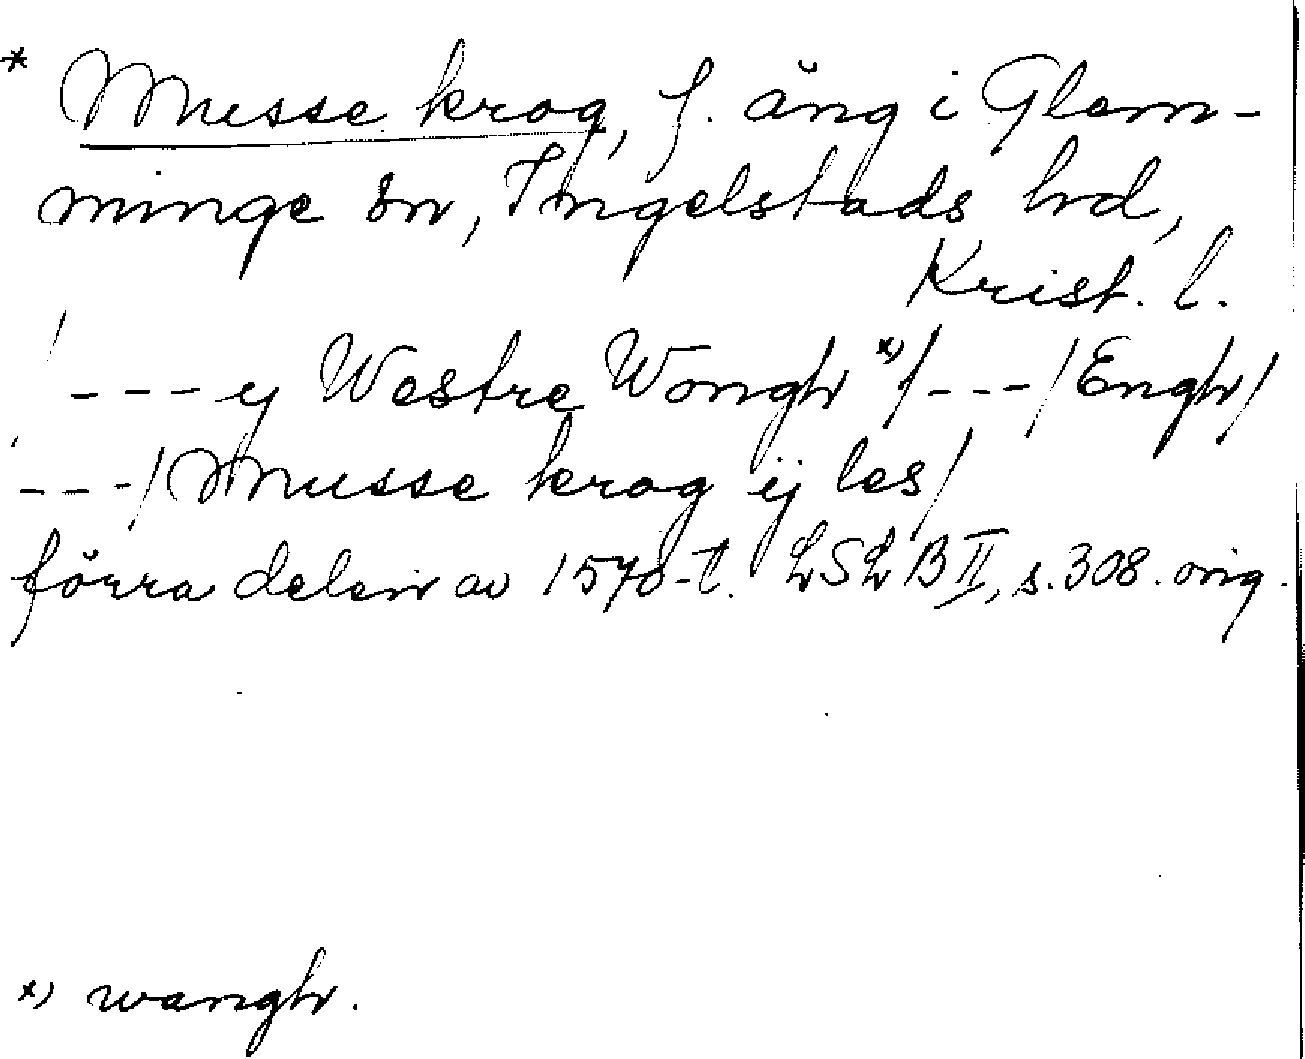 * Musse krog, f. äng i Glem-
minge sn, Ingelstads hd,
Krist. l.
/ --- ij Westre Wongh x) / --- / Engh /
--- / Musse krog ij les /
förra delen av 1570-t. LSLB II, s. 308. orig.
x) wangh.